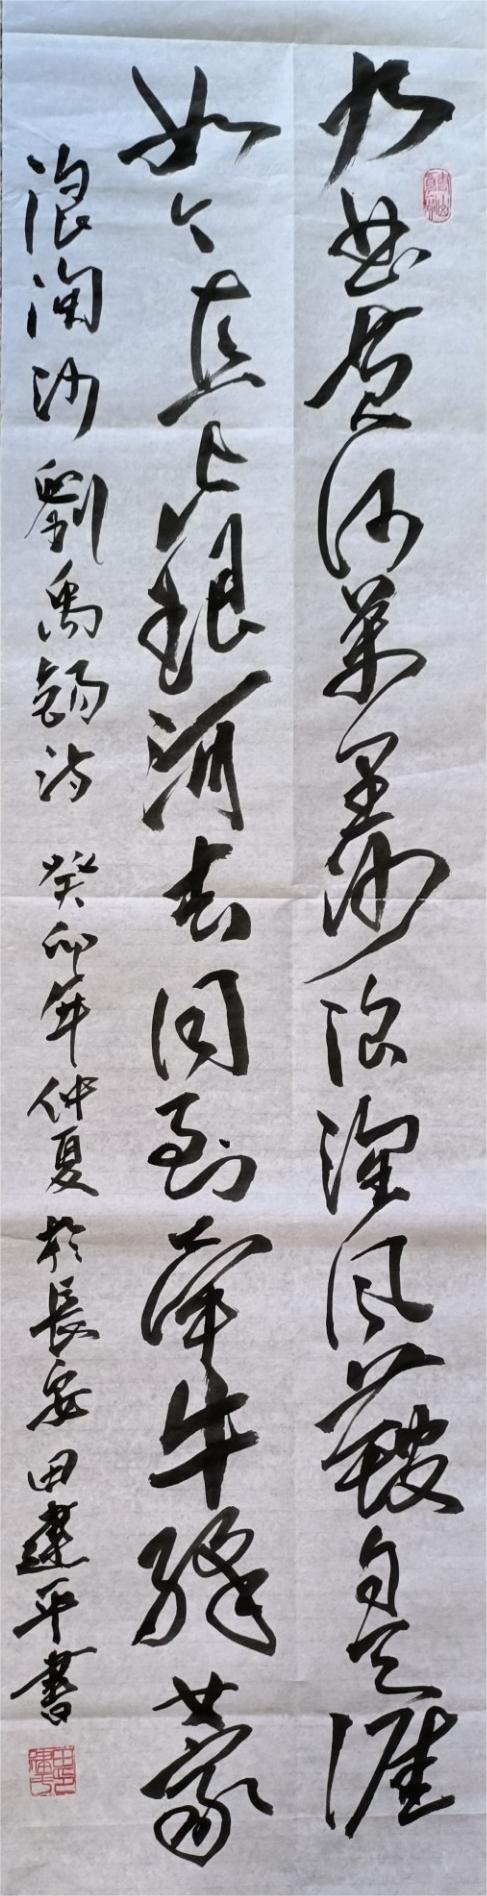 九曲黄河万里沙浪淘风簸自天涯
如今直上银河去同到牵牛织女家
浪淘沙 劉禹錫诗 癸卯年仲夏 於長安 田建平書